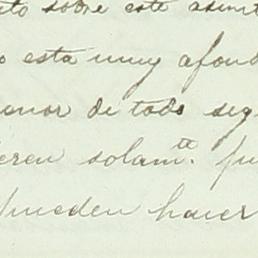 sobre este asunt
esta muy afond
de todo seg
solamte. fu
pueden hacer